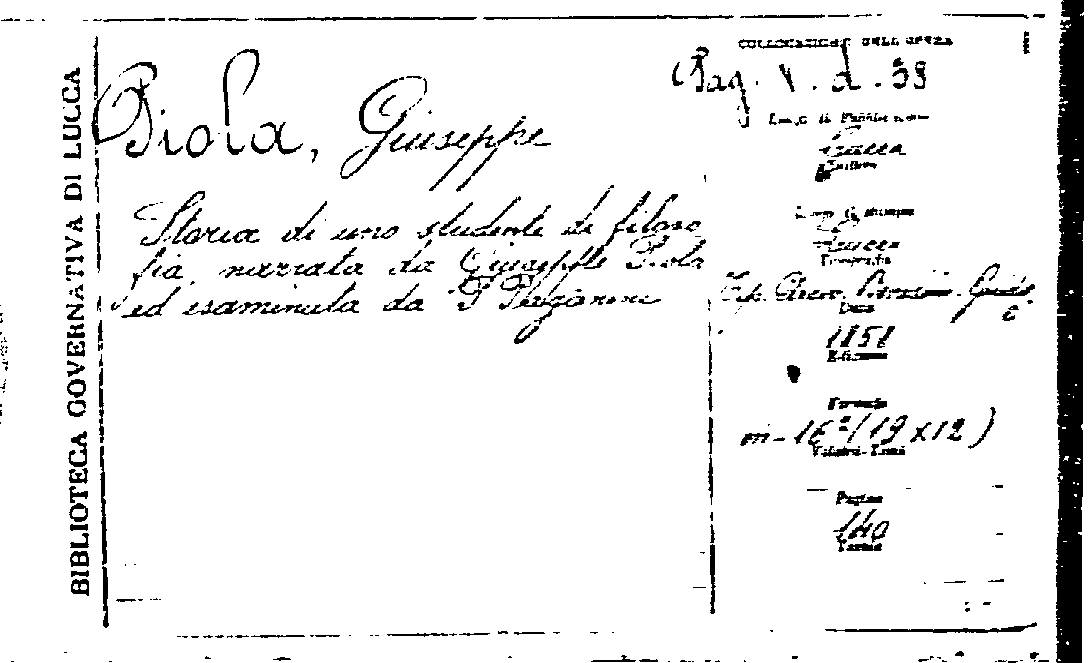 BIBLIOTECA GOVERNATIVA DI LUCCA
Piola, Giuseppe
Storia di uno studente di filoso
fia, narrata da Giuseppe Piola
ed esaminata da P Paganini
COLLOCAZIONE DELL'OPERA
Pag. V. d. 59
Luogo di Pubblicazione
Lucca
Editore
Luogo di stampa
Lucca
Tipografia
Tip.
Data
1851
Edizione
Formato
in-16º (19x12)
Volumi-Tomi
Pagine
140
Tavole